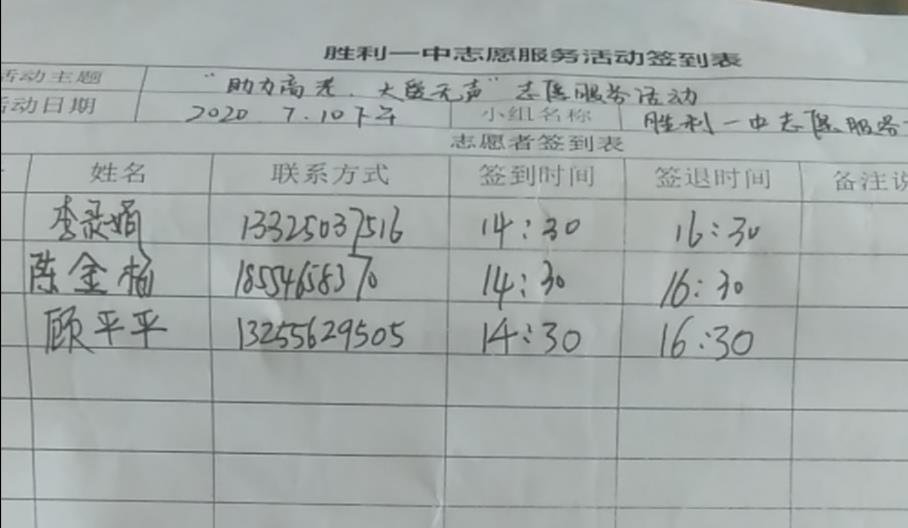 胜利一中志愿服务活动签到表
活动主题 “助力高考、大医无声”志愿服务活动
活动日期 2020 7.10下午 小组名称 胜利一中志愿服务
志愿者签到表
姓名 联系方式 签到时间 签退时间 备注说
李录娟 13325037516 14:30 16:30
陈金梅 18554658370 14:30 16:30
顾平平 13255629505 14:30 16:30